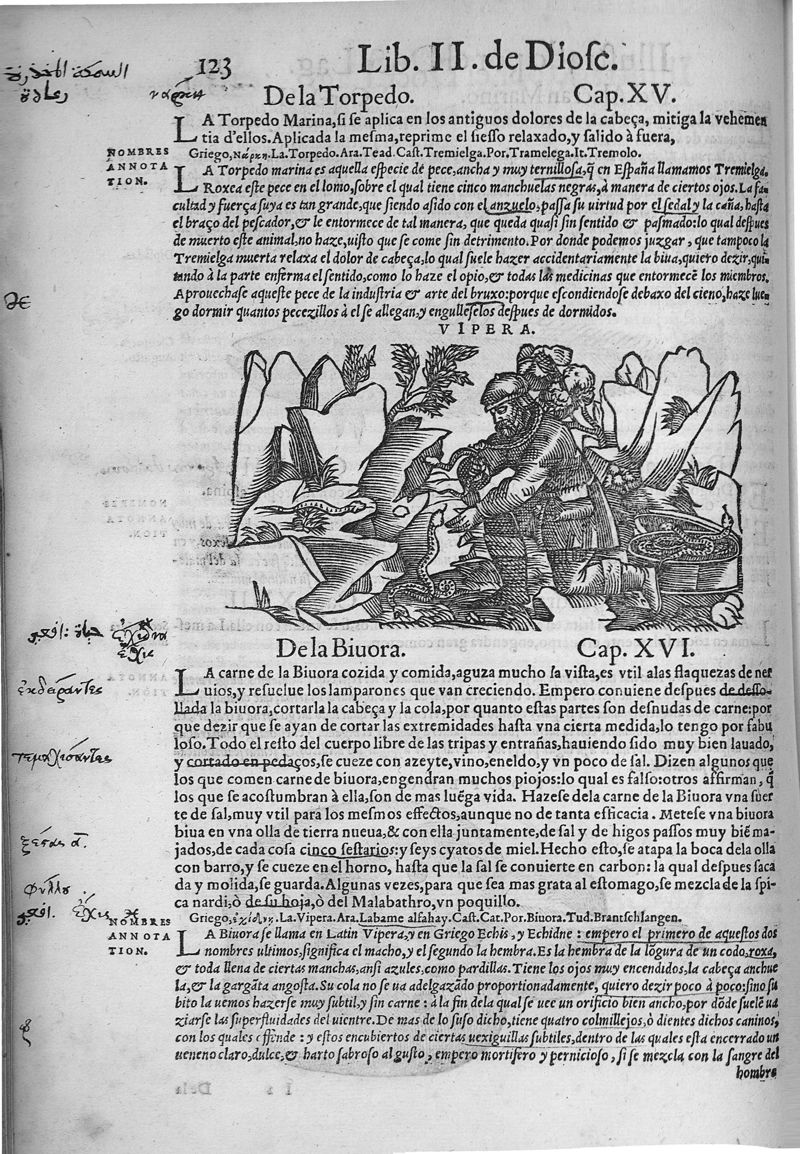 123 Lib. II. de Diosc.
νάρκη
De la Torpedo. Cap. XV.
LA Torpedo Marina, si se aplica en los antiguos dolores de la cabeça, mitiga la vehemen
tia d'ellos. Aplicada la mesma, reprime el siesso relaxado, y salido à fuera,
NOMBRES Griego, Νάρκη. La. Torpedo. Ara. Tead. Cast. Tremielga. Por. Tramelega. It. Tremolo.
ANNOTA
TION.
LA Torpedo marina es aquella especie de pece, ancha y muy ternillosa, q̃ en España llamamos Tremielga.
Roxea este pece en el lomo, sobre el qual tiene cinco manchuelas negras, à manera de ciertos ojos. La fa-
cultad y fuerça suya es tan grande, que siendo asido con el anzuelo, passa su virtud por el sedal y la caña, hasta
el braço del pescador, & le entormece de tal manera, que queda quasi sin sentido & pasmado: lo qual despues
de muerto este animal, no haze, uisto que se come sin detrimento. Por donde podemos juzgar, que tampoco la
Tremielga muerta relaxa el dolor de cabeça, lo qual suele hazer accidentariamente la biua, quiero dezir, qui-
tando à la parte enferma el sentido, como lo haze el opio, & todas las medicinas que entormecẽ los miembros.
Aprouechase aqueste pece de la industria & arte del bruxo: porque escondiendose debaxo del cieno, haze lue-
go dormir quantos pecezillos à el se allegan, y engulleselos despues de dormidos.
VIPERA.
De la Biuora. Cap. XVI.
LA carne de la Biuora cozida y comida, aguza mucho la vista, es vtil alas flaquezas de ner
uios, y resuelue los lamparones que van creciendo. Empero conuiene despues de desso-
llada la biuora, cortarla la cabeça y la cola, por quanto estas partes son desnudas de carne: por
que dezir que se ayan de cortar las extremidades hasta vna cierta medida, lo tengo por fabu
loso. Todo el resto del cuerpo libre de las tripas y entrañas, hauiendo sido muy bien lauado,
y cortado en pedaços, se cueze con azeyte, vino, eneldo, y vn poco de sal. Dizen algunos que
los que comen carne de biuora, engendran muchos piojos: lo qual es falso: otros affirman, q̃
los que se acostumbran à ella, son de mas luẽga vida. Hazese dela carne de la Biuora vna suer
te de sal, muy vtil para los mesmos effectos, aunque no de tanta efficacia. Metese vna biuora
biua en vna olla de tierra nueua, & con ella juntamente, de sal y de higos passos muy biẽ ma-
jados, de cada cosa cinco sestarios: y seys cyatos de miel. Hecho esto, se atapa la boca dela olla
con barro, y se cueze en el horno, hasta que la sal se conuierte en carbon: la qual despues saca
da y molida, se guarda. Algunas vezes, para que sea mas grata al estomago, se mezcla de la spi
ca nardi, ò de su hoja, ò del Malabathro, vn poquillo.
NOMBRES Griego, ἔχιδνη. La. Vipera. Ara. Labame alfahay. Cast. Cat. Por. Biuora. Tud. Brantschlangen.
ANNOTA
TION.
LA Biuora se llama en Latin Vipera, y en Griego Echis, y Echidne: empero el primero de aquestos dos
nombres ultimos, significa el macho, y el segundo la hembra. Es la hembra de la lõgura de un codo, roxa,
& toda llena de ciertas manchas, ansi azules, como pardillas. Tiene los ojos muy encendidos, la cabeça anchue
la, & la gargãta angosta. Su cola no se ua adelgazãdo proportionadamente, quiero dezir poco à poco: sino su
bito la uemos hazerse muy subtil, y sin carne: à la fin dela qual se uee un orificio bien ancho, por dõde suelẽ ua
ziarse las superfluidades del uientre. De mas de lo suso dicho, tiene quatro colmillejos, ò dientes dichos caninos,
con los quales offende: y estos encubiertos de ciertas uexiguillas subtiles, dentro de las quales esta encerrado un
ueneno claro, dulce, & harto sabroso al gusto, empero mortifero y pernicioso, si se mezcla con la sangre del
hombre
ἐκδείραντες
τεμαχίσαντες
φύλλου